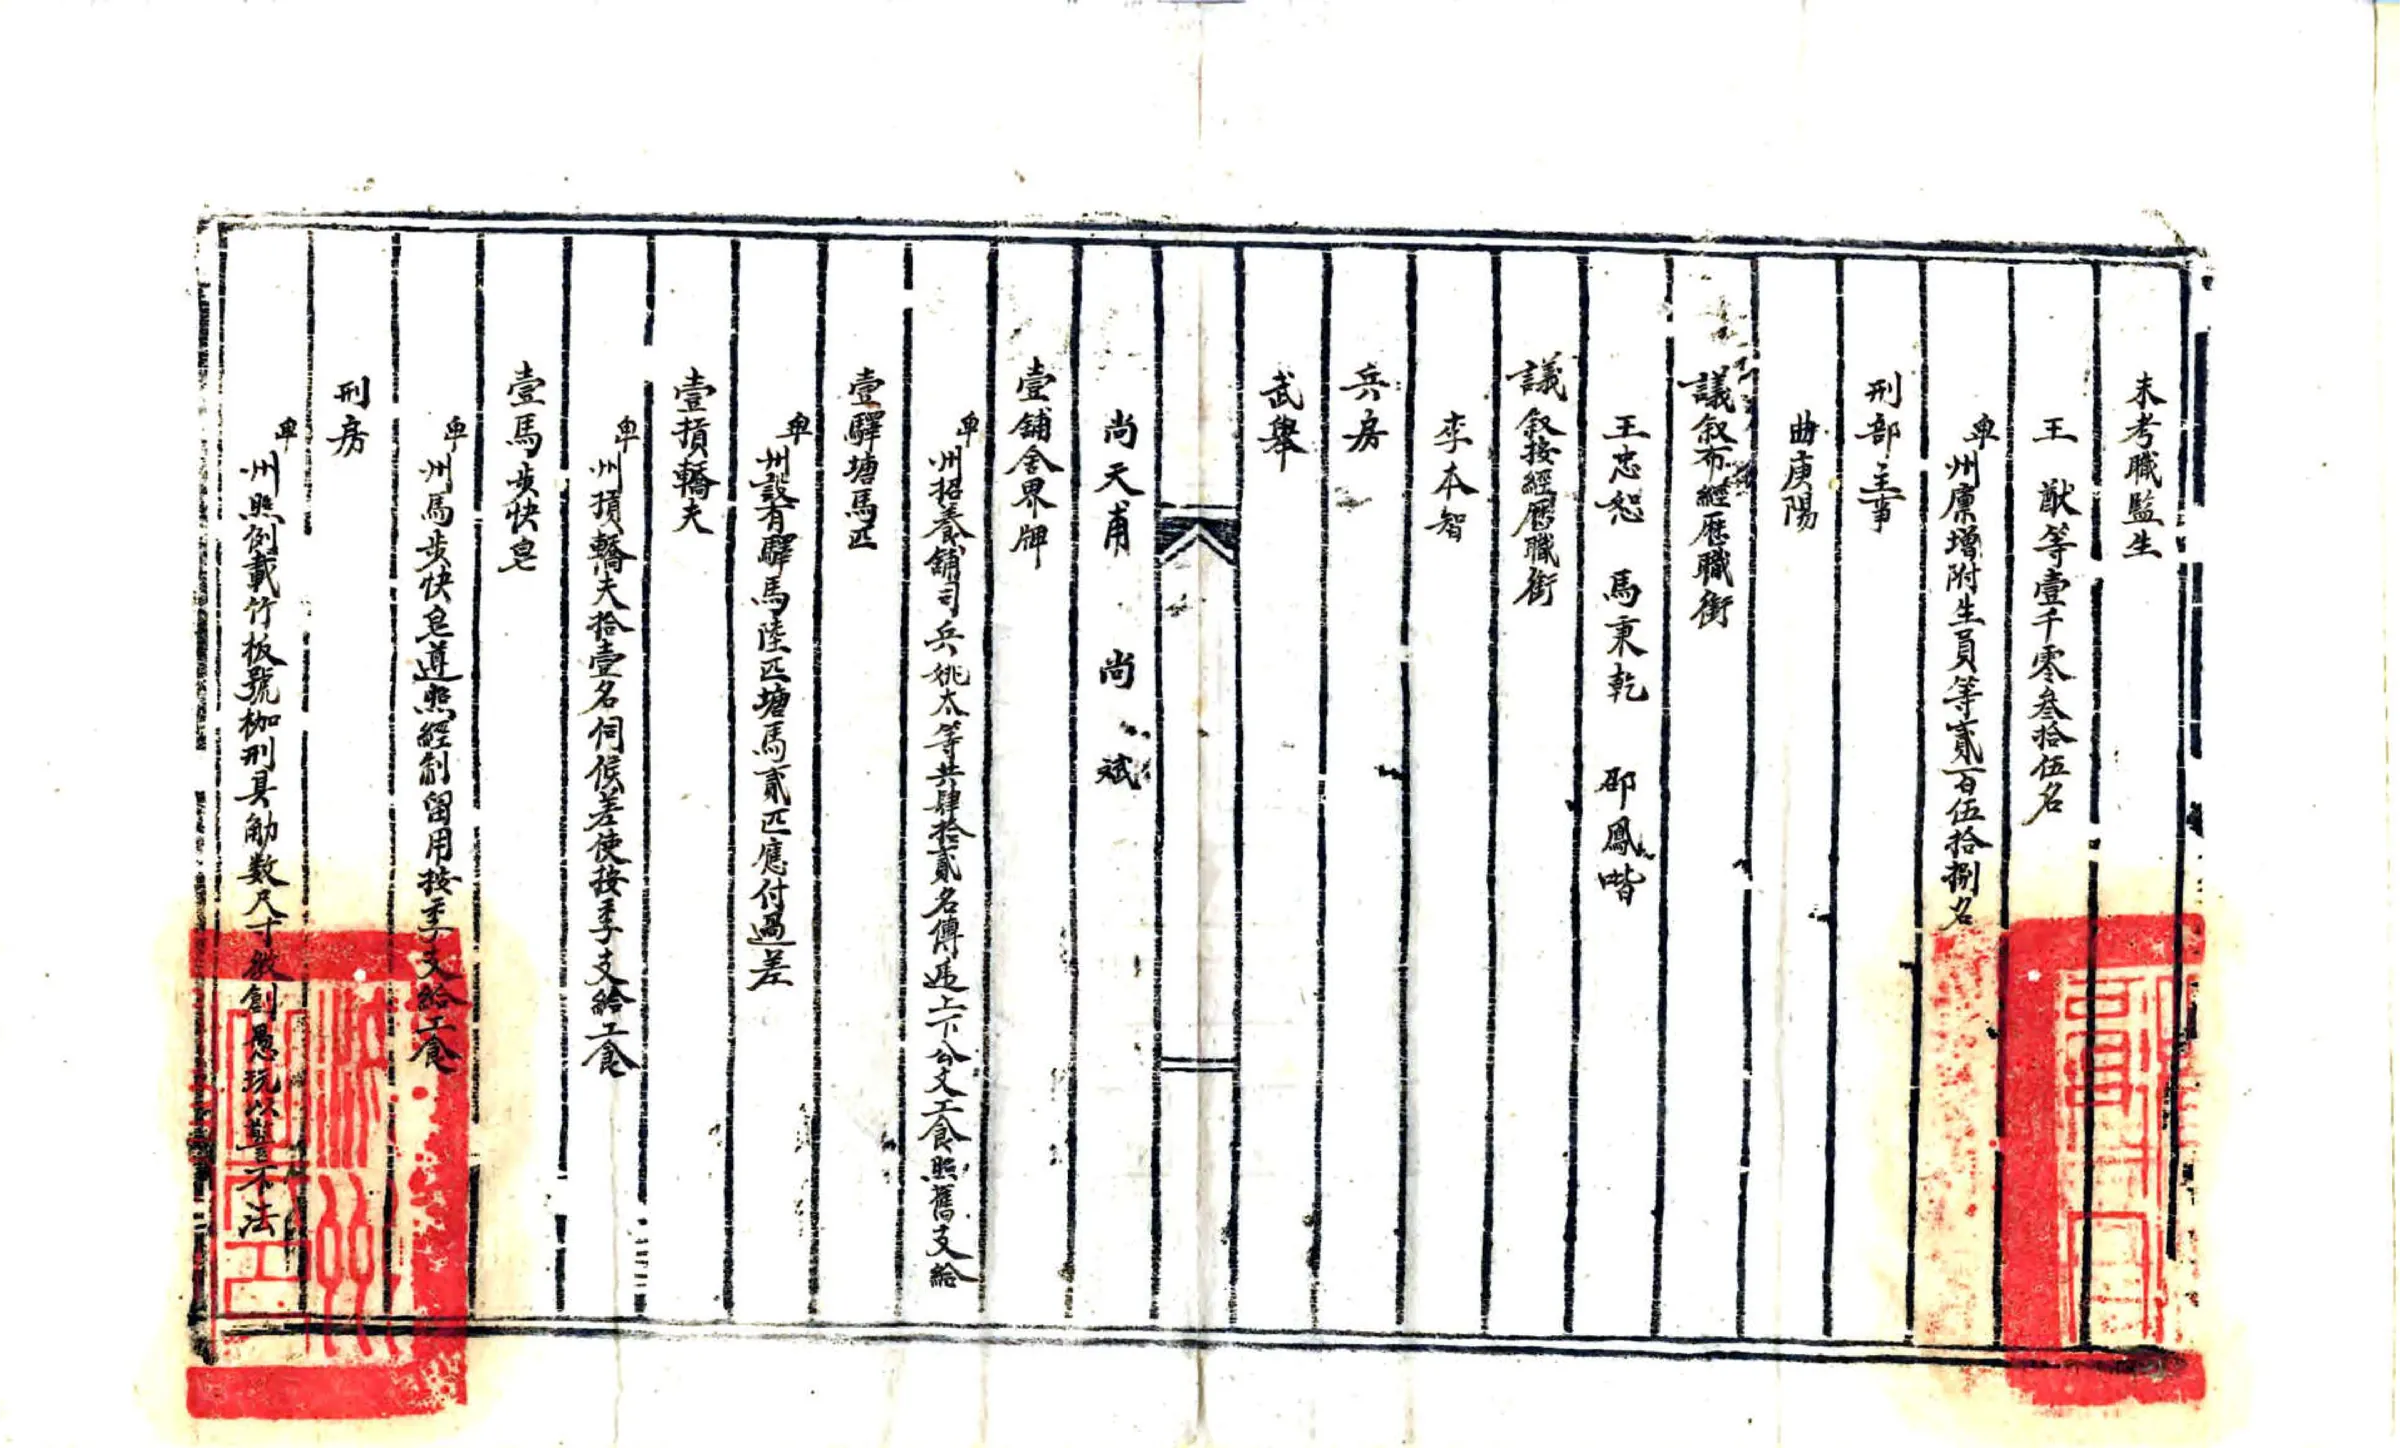 未考職監生
王猷等壹千零叁拾伍名
卑州廩增附生員等貳百伍拾捌名
刑部主事
曲庚陽
議叙布經歷職銜
王忠恕 馬秉乾 邵鳳喈
議叙按經歷職銜
李本智
兵房
武舉
尚天甫 尚斌
壹舖舍界牌
卑州招養舖司兵姚太等共肆拾貳名傳逓上下公文工食照舊支給
壹驛塘馬匹
卑州設有驛馬陸匹塘馬貳匹應付過差
壹摃轎夫
卑州摃轎夫拾壹名伺候差使按季支給工食
壹馬步快皂
卑州馬步快皂遵照經制留用按季支給工食
刑房
卑州照例載竹板號枷刑具觔数尺寸儆創愚玩以警不法